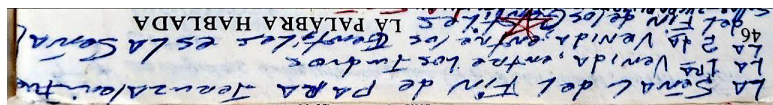 LA Señal del Fin de PARA Jeruzalen fue
LA 1ra Venida, entre los Judios
LA 2da Venida entre los Gentiles es LA Señal
del Fin de los Gentiles
46 LA PALABRA HABLADA